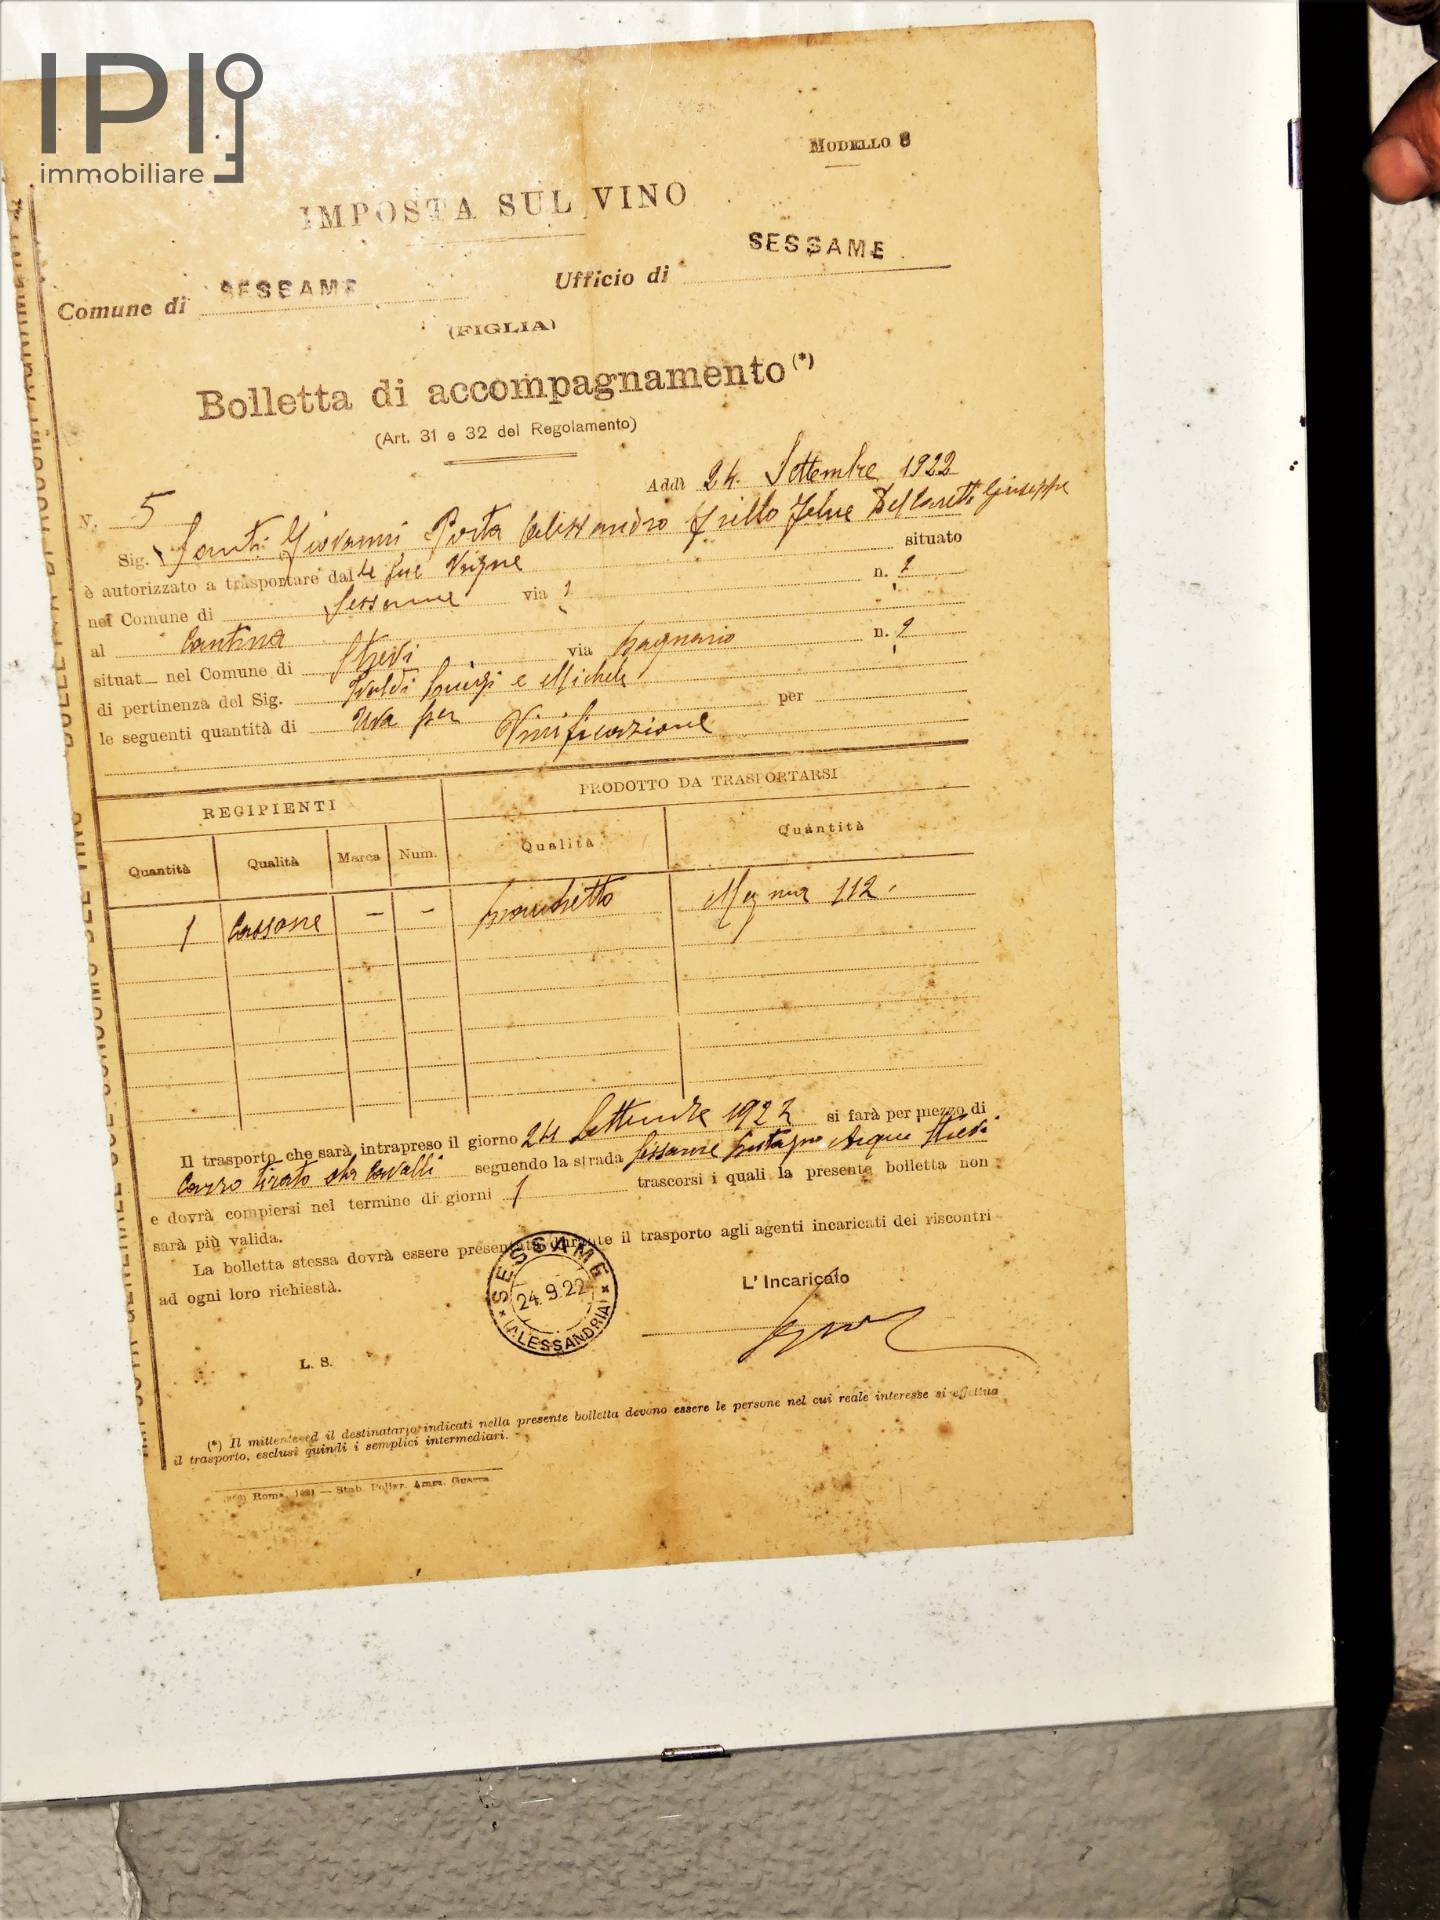 IPI
immobiliare
MODELLO 8
IMPOSTA SUL VINO
Comune di SESSAME Ufficio di SESSAME
(FIGLIA)
Bolletta di accompagnamento (*)
(Art. 31 e 32 del Regolamento)
Addì 24 Settembre 1922
N. 5
Sig. Giovanni Porta Alessandro Grillo Delcaretto Giuseppe
è autorizzato a trasportare dalle sue Vigne situato
nel Comune di Sessame via n.
al Cantina
situat nel Comune di Strevi via n.
di pertinenza del Sig. Ivaldi Luigi e Michele
le seguenti quantità di Uva per per
Vinificazione
REGIPIENTI PRODOTTO DA TRASPORTARSI
Quantità Qualità Marca Num. Qualità Quantità
1 Cassone - - 112
Il trasporto che sarà intrapreso il giorno 24 Settembre 1922 si farà per mezzo di
Carro tirato da Cavalli seguendo la strada Sessame Bistagno Acqui Strevi
e dovrà compiersi nel termine di giorni 1 trascorsi i quali la presente bolletta non
sarà più valida.
La bolletta stessa dovrà essere presentata durante il trasporto agli agenti incaricati dei riscontri
ad ogni loro richiestà.
SESSAME
24.9.22
(ALESSANDRIA)
L' Incaricato
L. S.
(*) Il mittente ed il destinatario indicati nella presente bolletta devono essere le persone nel cui reale interesse si effettua
il trasporto, esclusi quindi i semplici intermediari.
Roma, 1921 — Stab. Poligr. Amm. Guerra